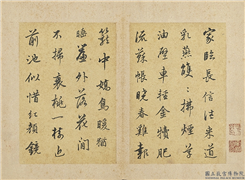 家臨長信往來道
乳燕雙雙拂煙草
油壁車輕金犢肥
流蘇帳曉春雞報
籠中嬌鳥暖猶
睡簾外落花閒
不掃衰桃一樹近
前池似惜紅顏鏡